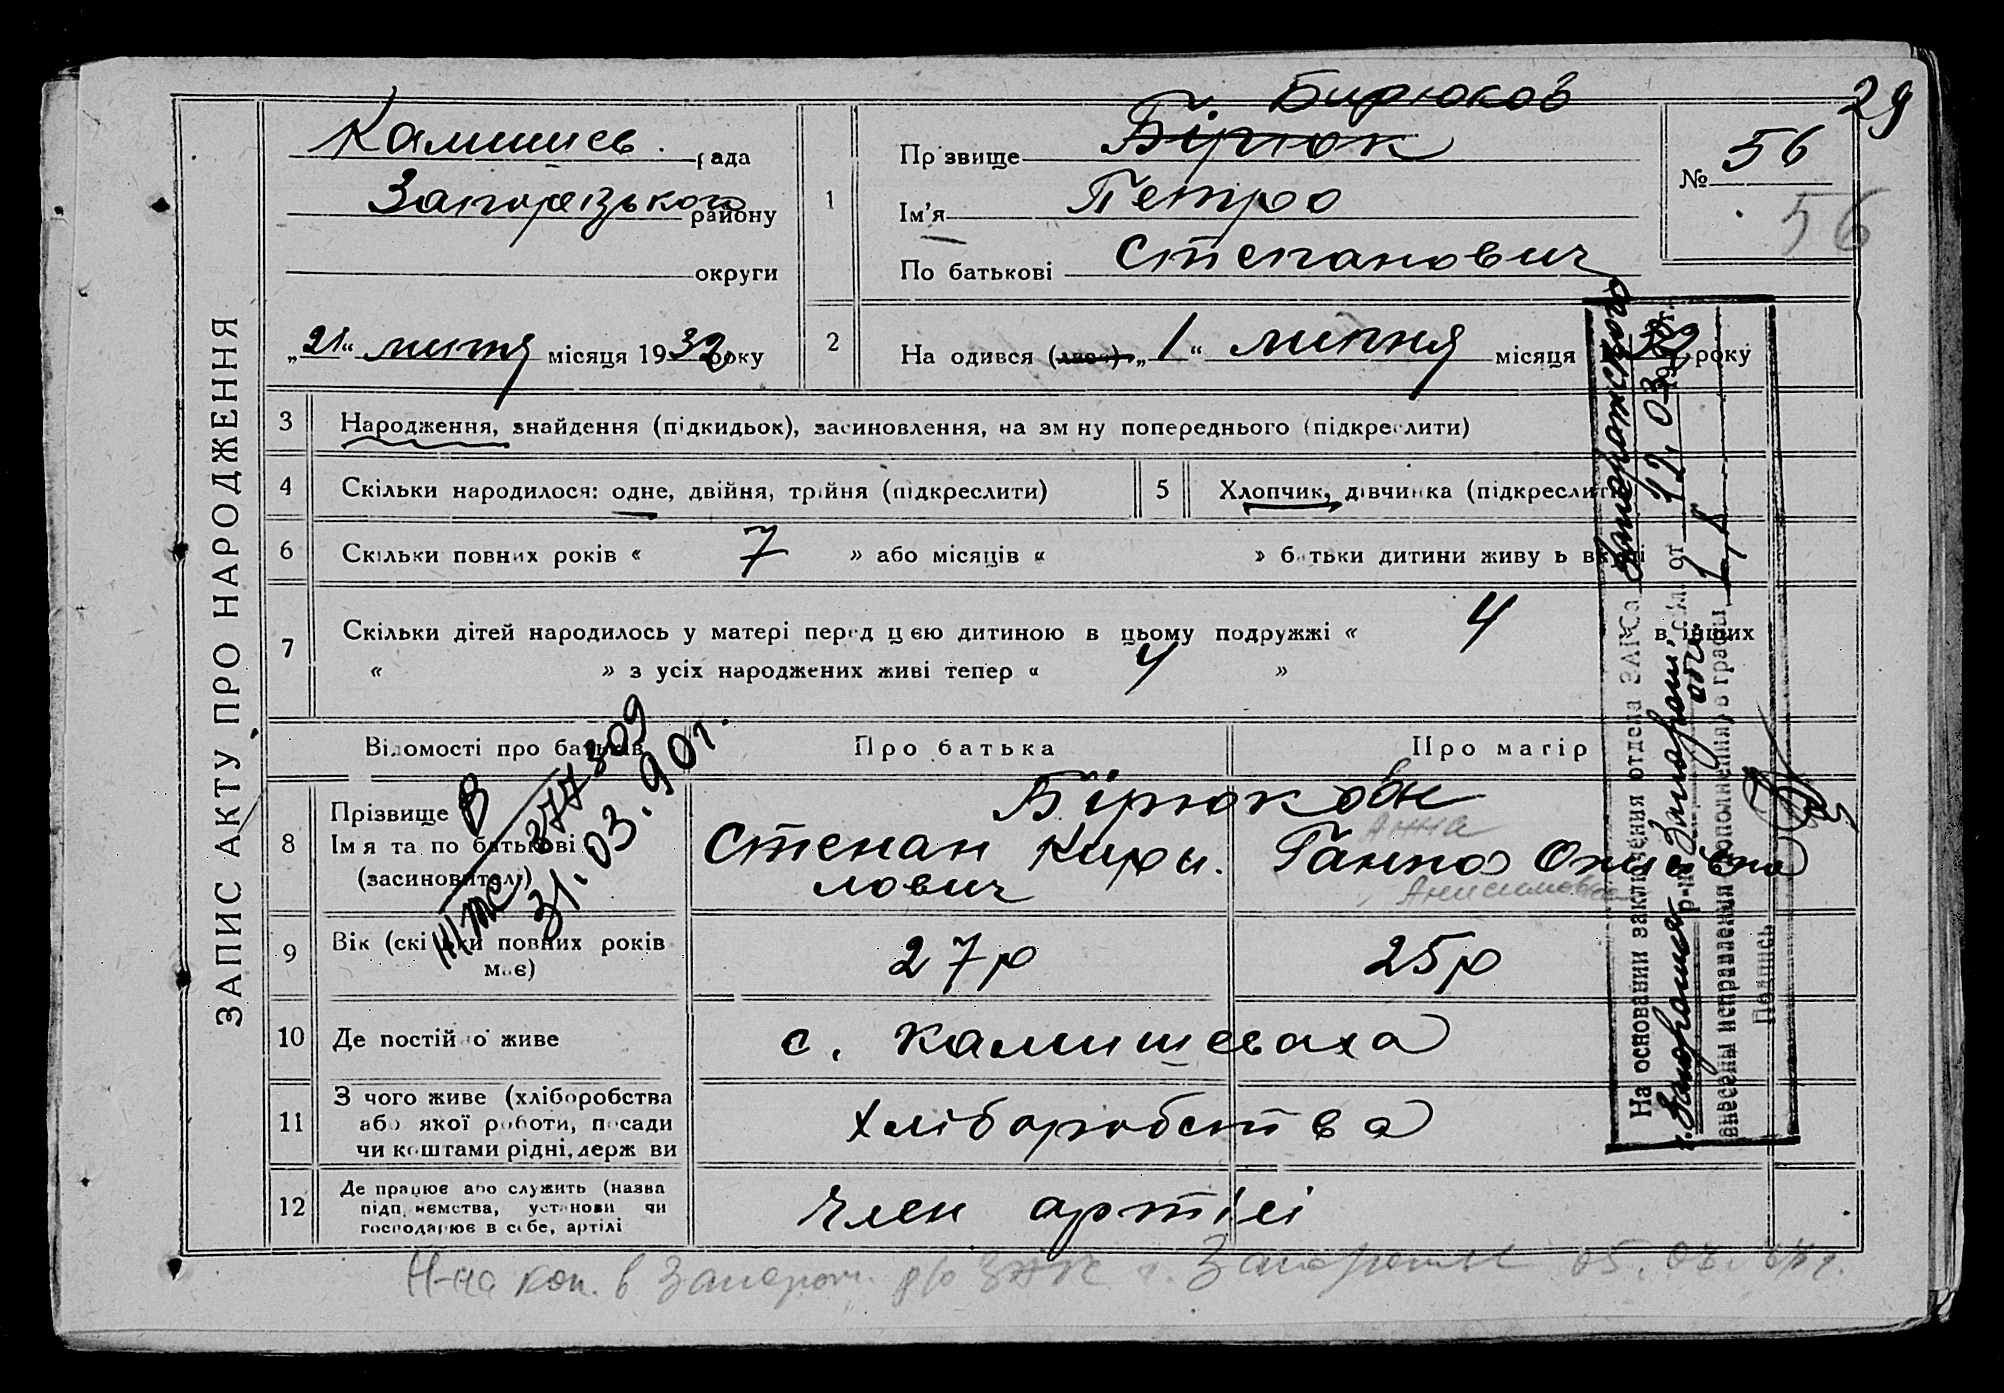 29
ЗАПИС АКТУ ПРО НАРОДЖЕННЯ
Камишев. рада
Запорізького району
округи
„21“ липня місяця 1932 року
1
Бирюков
Прізвище Бірюк
Ім'я Петро
По батькові Степанович
№ 56
56
2
На одився (лася) „1“ липня місяця 1932 року
3 Народження, знайдення (підкидьок), засиновлення, на зм ну попереднього (підкреслити)
4 Скільки народилося: одне, двійня, трійня (підкреслити)
5 Хлопчик, дівчинка (підкреслити
6 Скільки повних років « 7 » або місяців « » батьки дитини живу ь в
7 Скільки дітей народилось у матері перед цією дитиною в цьому подружжі « 4 в інших
« » з усіх народжених живі тепер « 4 »
Відомості про батьків
Про батька
Про матір
8 Прізвище
Ім я та по батькові
(засиновителі)
Бірюкови
Степан Кири.
лович
Анна
Ганна
Анисимовна
В
377309
31.03.90г.
9 Вік (скільки повних років
має)
27р
25р
10 Де постійно живе
с. Камишеваха
11 З чого живе (хліборобства
або якої роботи, посади
чи коштами рідні, держ ви
хліборобства
12 Де працює або служить (назва
підп иємства, установи чи
господарює в себе, артілі
член артілі
На основании заключения отдела ЗАГСа Запорожского
г. Запорожья р-на Запорож. обл. от 12.03. 19 г.
внесены исправления дополнения, о графы 1,8
Подпись
Н-на коп. в Запорож. р/о ЗАГС г. Запорожье 05.